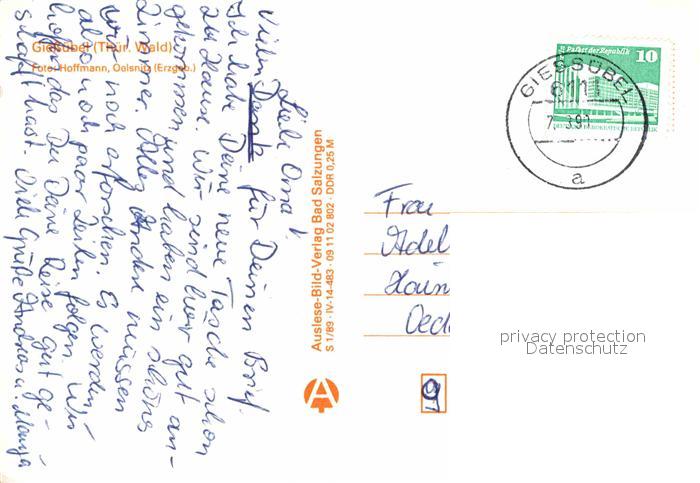 Gießübel (Thür. Wald)
Foto: Hoffmann, Oelsnitz (Erzgeb.)
Liebe Oma!
Vielen Dank für Deinen Brief.
Ich habe Deine neue Tasche schon
zu Hause. Wir sind hier gut an-
gekommen und haben ein schönes
Zimmer. Alles andere müssen
wir noch erforschen. Es werden
also noch paar Zeilen folgen. Wir
hoffen, das Du Deine Reise gut ge-
schafft hast. Viele Grüße Andreas u. Manja
Auslese-Bild-Verlag Bad Salzungen
S 1/89 · IV-14-483 · 09 11 02 802 · DDR 0,25 M
A
Palast der Republik 10
DEUTSCHE DEMOKRATISCHE REPUBLIK
GIESSÜBEL
6111
a
Frau
Adel
Hain
Oed
9
privacy protection
Datenschutz